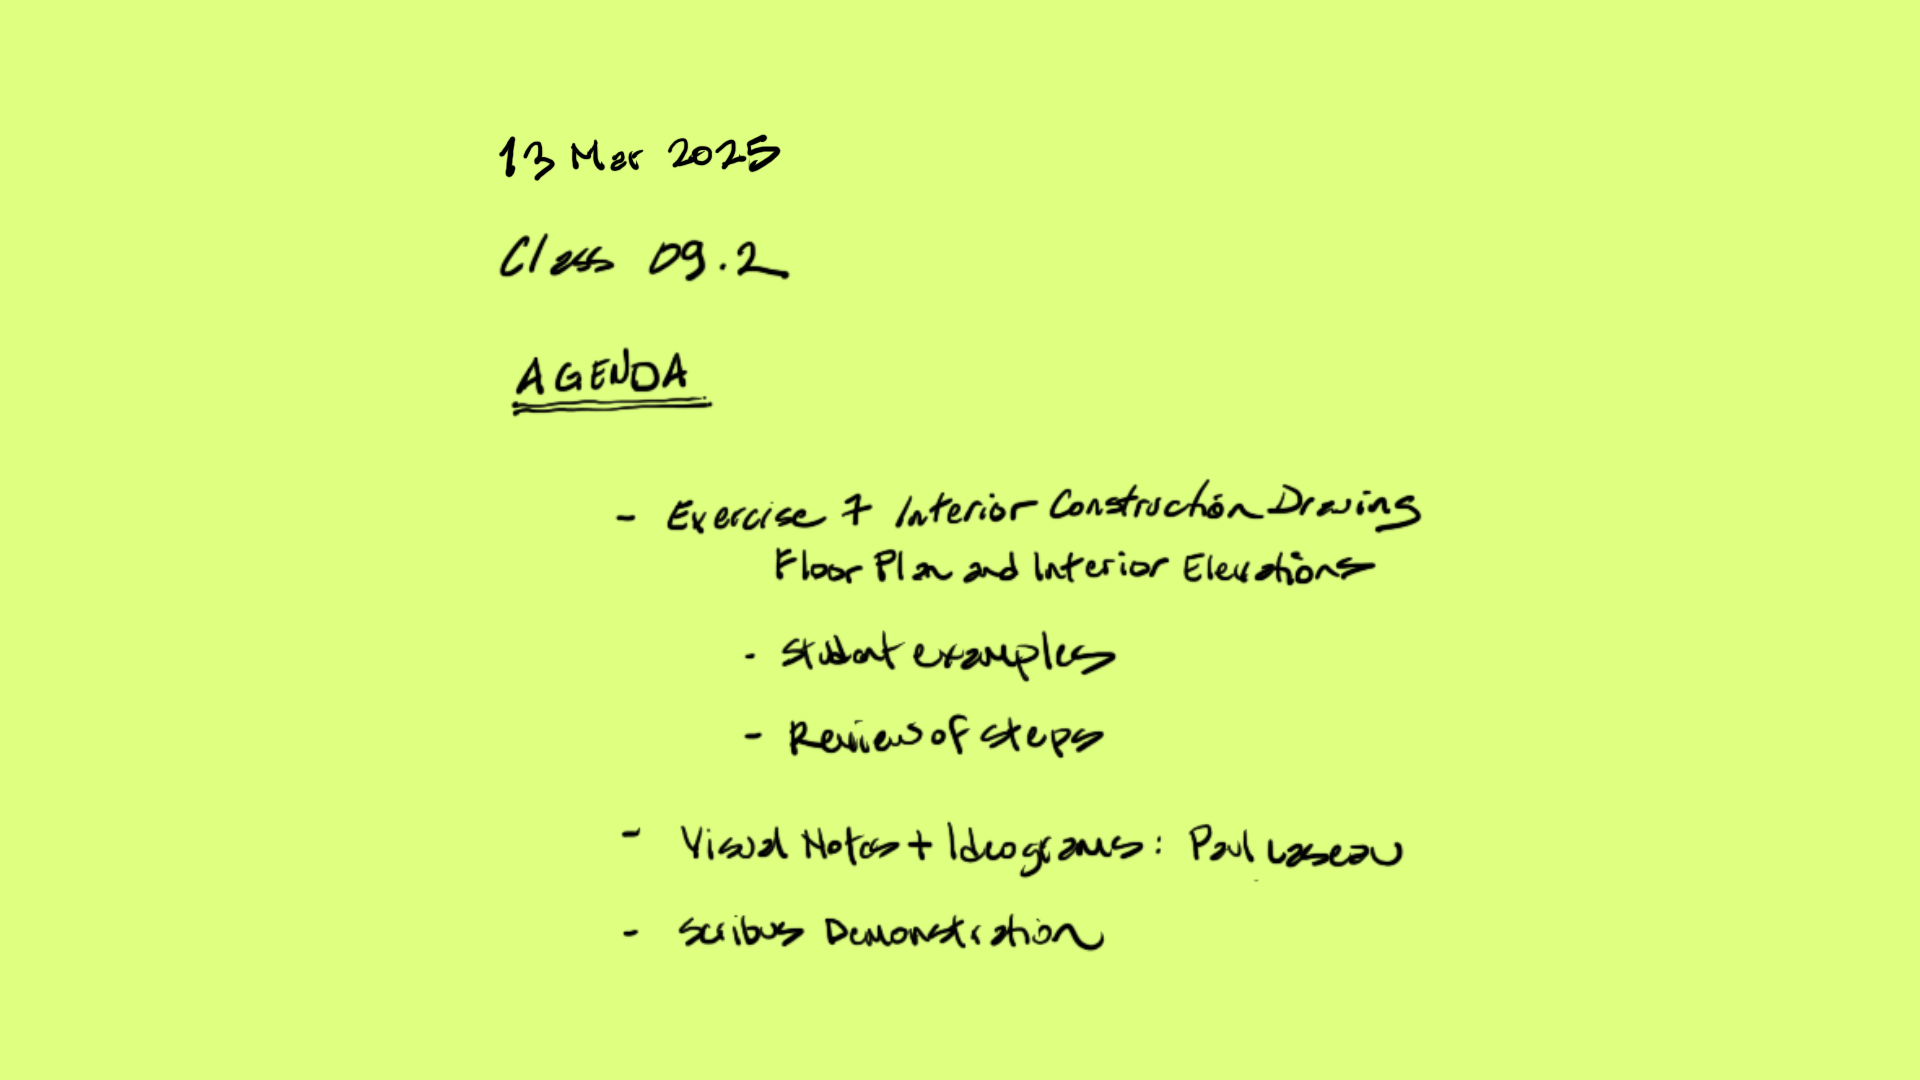 13 Mar 2025
Class 09.2
AGENDA
- Exercise 7 Interior Construction Drawing
Floor Plan and Interior Elevations
- Student examples
- Review of steps
- Visual Notes + Ideograms: Paul Laseau
- Scribus Demonstration